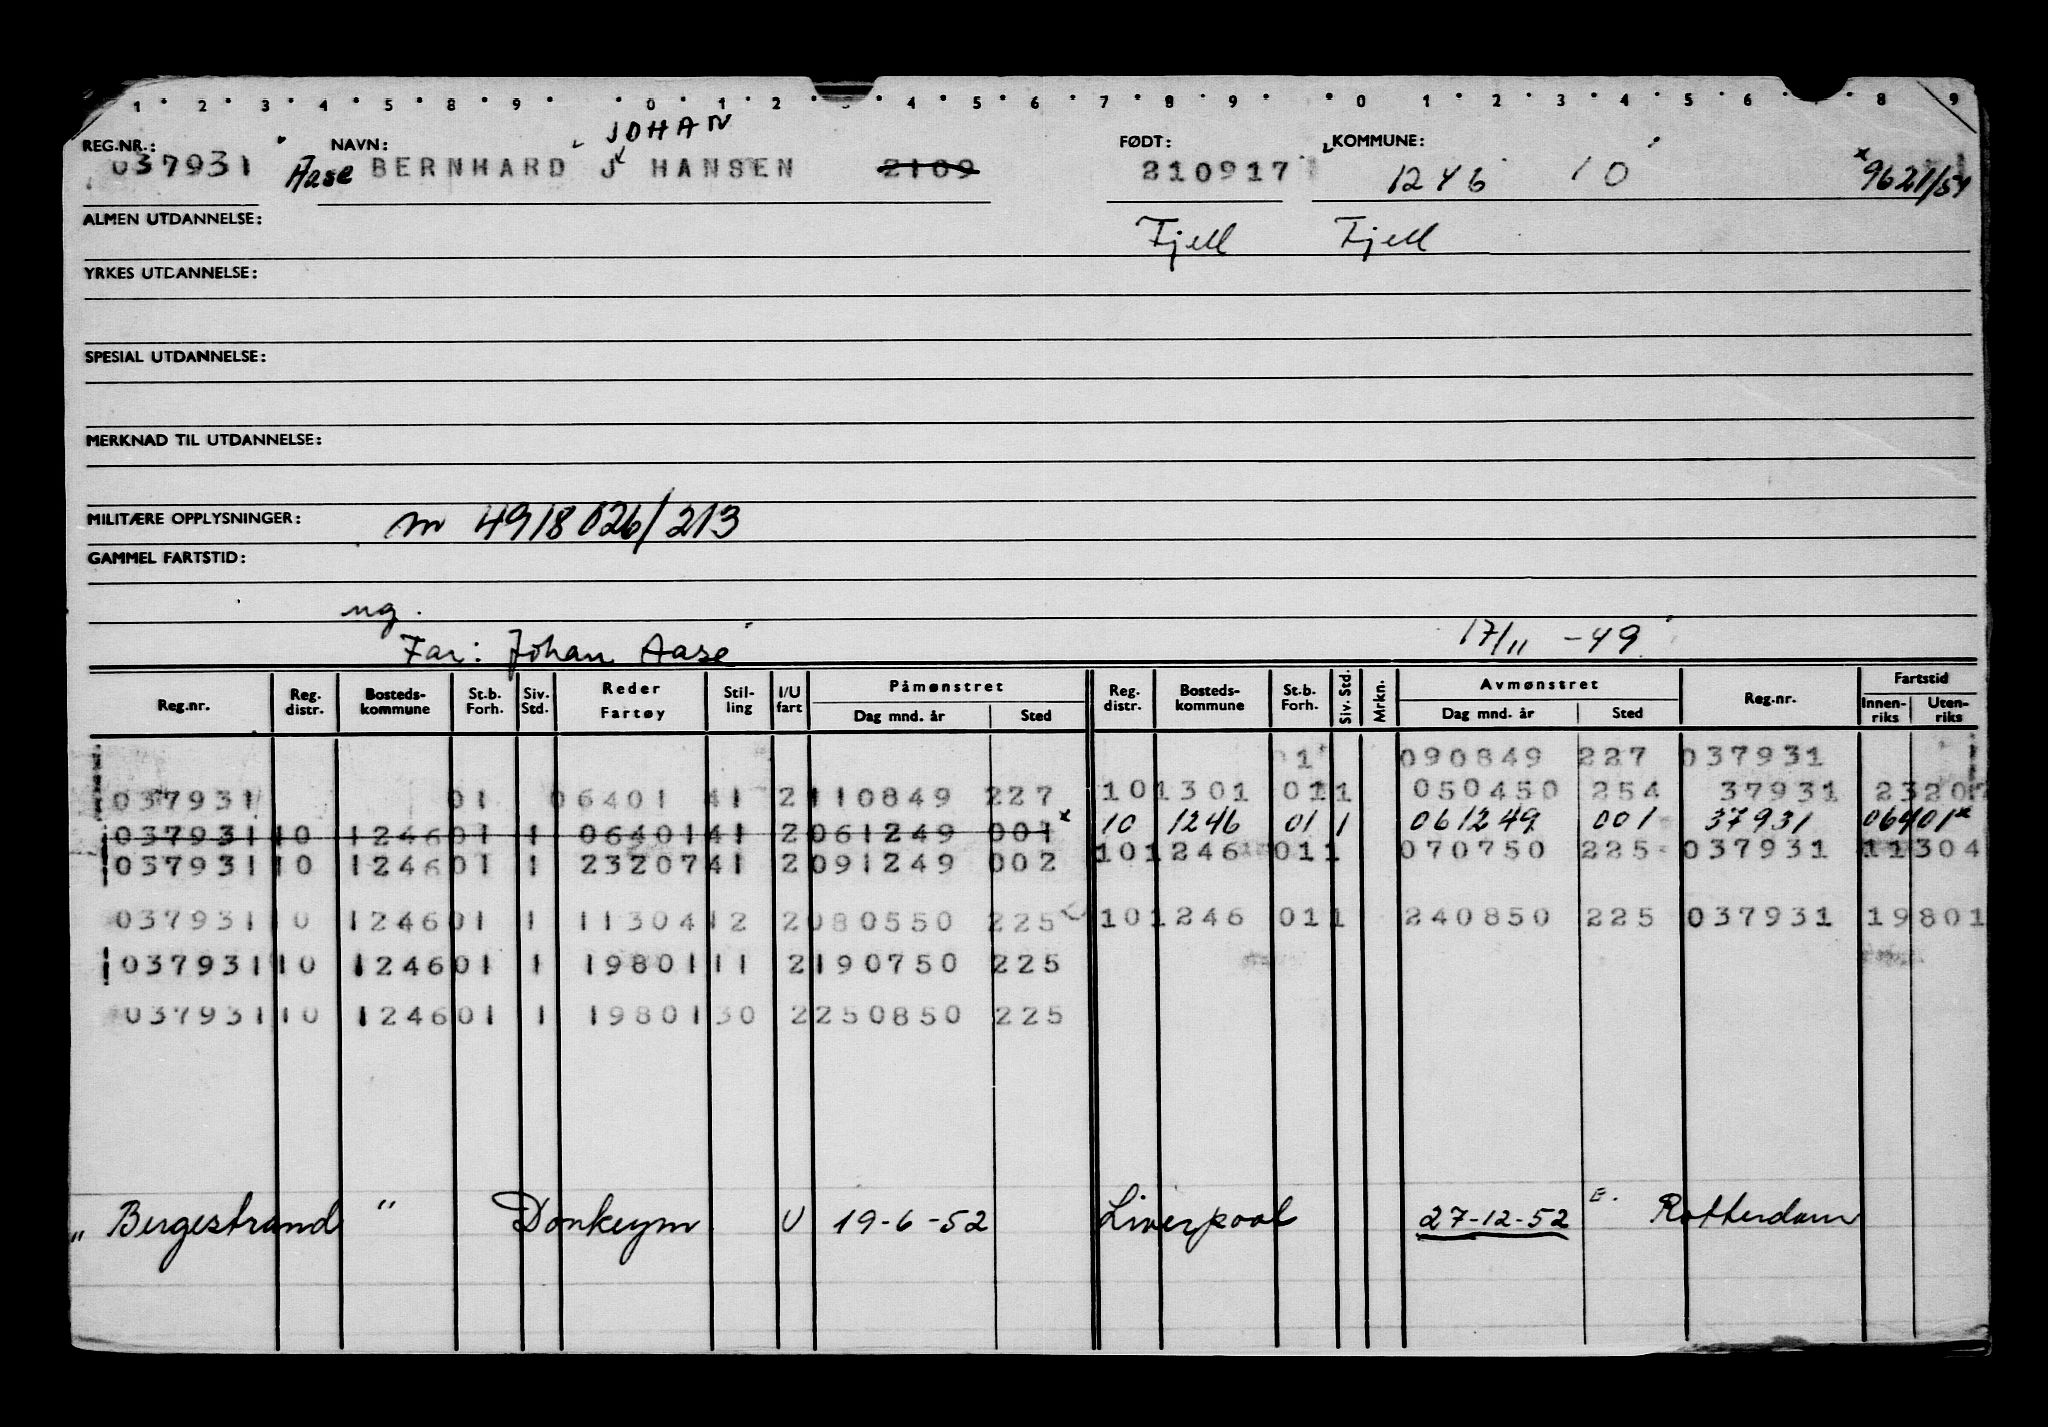 1 2 3 4 5 8 9 0 1 2 3 4 5 6 7 8 9 0 1 2 3 4 5 6 8 9
JOHAN
REG.NR.: NAVN: FØDT: KOMMUNE:
037931 Aase BERNHARD J HANSEN 2109 210917 1246 10 9621/54
ALMEN UTDANNELSE: Fjell Fjell
YRKES UTDANNELSE:
SPESIAL UTDANNELSE:
MERKNAD TIL UTDANNELSE:
MILITÆRE OPPLYSNINGER: m 4918026/213
GAMMEL FARTSTID:
ug.
Far: Johan Aase 17/11 -49
Reg.nr. Reg. distr. Bosteds- kommune St.b. Forh. Siv. Std. Reder Fartøy Stil- ling I/U fart Påmønstret Dag mnd. år Sted Reg. distr. Bosteds- kommune St.b. Forh. Siv. Std. Mrkn. Avmønstret Dag mnd. år Sted Reg.nr. Fartstid Innen- riks Uten- riks
01 090849 227 037931
037931 01 06401 41 2 110849 227 10 1301 01 1 050450 254 37931 23207
037931 10 1246 01 1 06401 41 2 061249 001 x 10 1246 01 1 061249 001 37931 06401 x
037931 10 1246 01 1 23207 41 2 091249 002 10 1246 01 1 070750 225 037931 11304
037931 10 1246 01 1 11304 12 2 080550 225 10 1246 01 1 240850 225 037931 19801
037931 10 1246 01 1 19801 11 2 190750 225
037931 10 1246 01 1 19801 30 2 250850 225
" Bergestrand " Donkeym U 19-6-52 Liverpool 27-12-52 E. Rotterdam